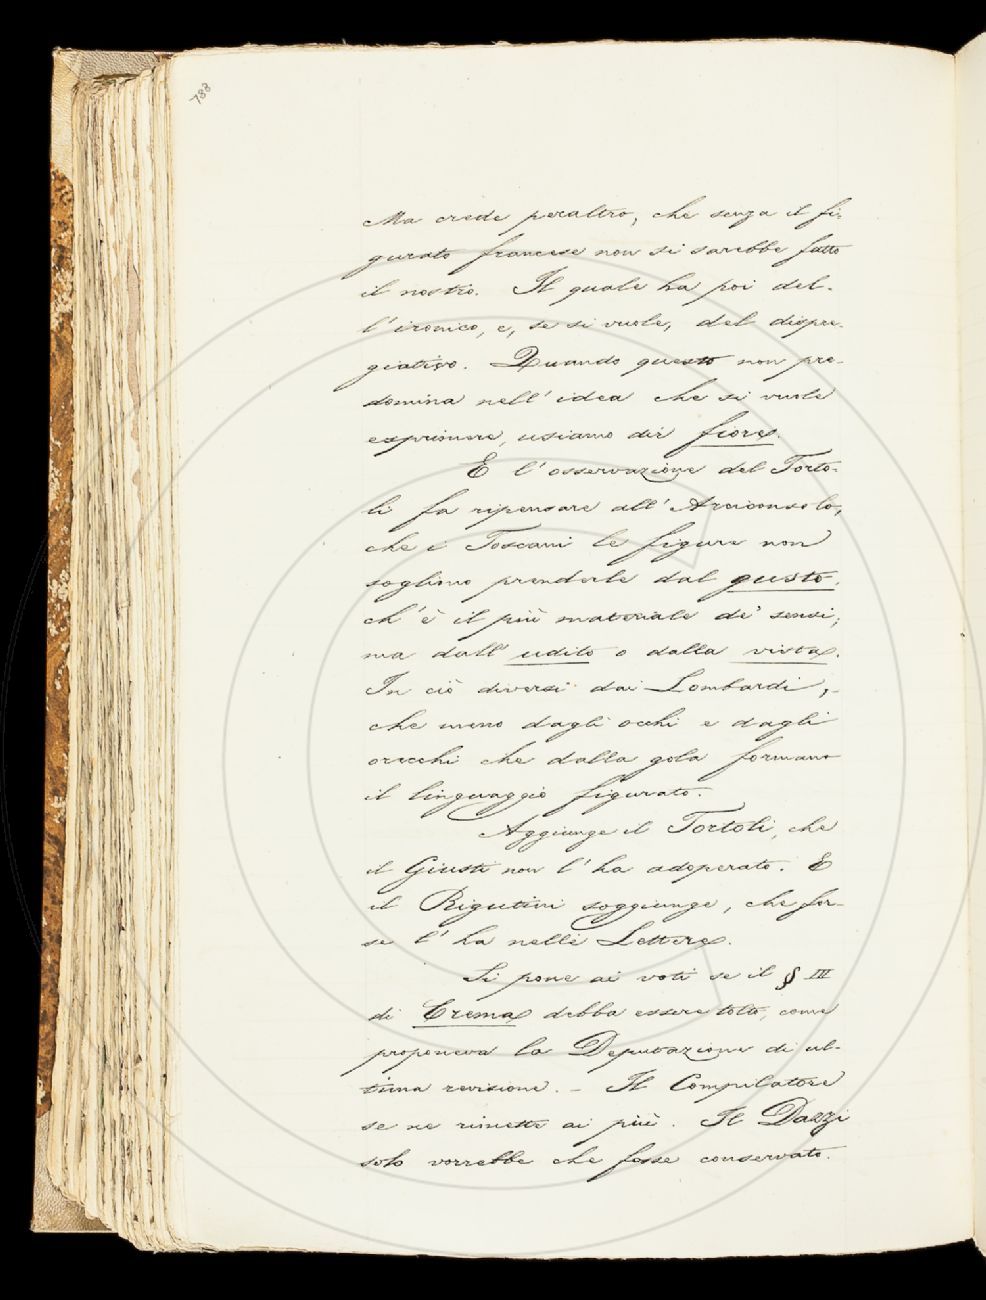 788
Ma crede peraltro, che senza il fi-
gurato francese non si sarebbe fatto
il nostro. Il quale ha poi del-
l'ironico, e, se si vuole, del dispre-
giativo. Quando questo non pre-
domina nell'idea che si vuole
esprimere, usiamo dir fiore.
E l'osservazione del Torto-
li fa ripensare all'Arciconsolo,
che i Toscani le figure non
sogliono prenderle dal gusto,
ch'è il più materiale de' sensi;
ma dall'udito o dalla vista.
In ciò diversi dai Lombardi,
che meno dagli occhi e dagli
orecchi che dalla gola formano
il linguaggio figurato.
Aggiunge il Tortoli, che
il Giusti non l'ha adoperato. E
il Rigutini soggiunge, che for-
se l'ha nelle Lettere.
Si pone ai voti se il § III
di Crema debba essere tolto, come
proponeva la Deputazione di ul-
tima revisione. - Il Compilatore
se ne rimette ai più. Il Dazzi
solo vorrebbe che fosse conservato.